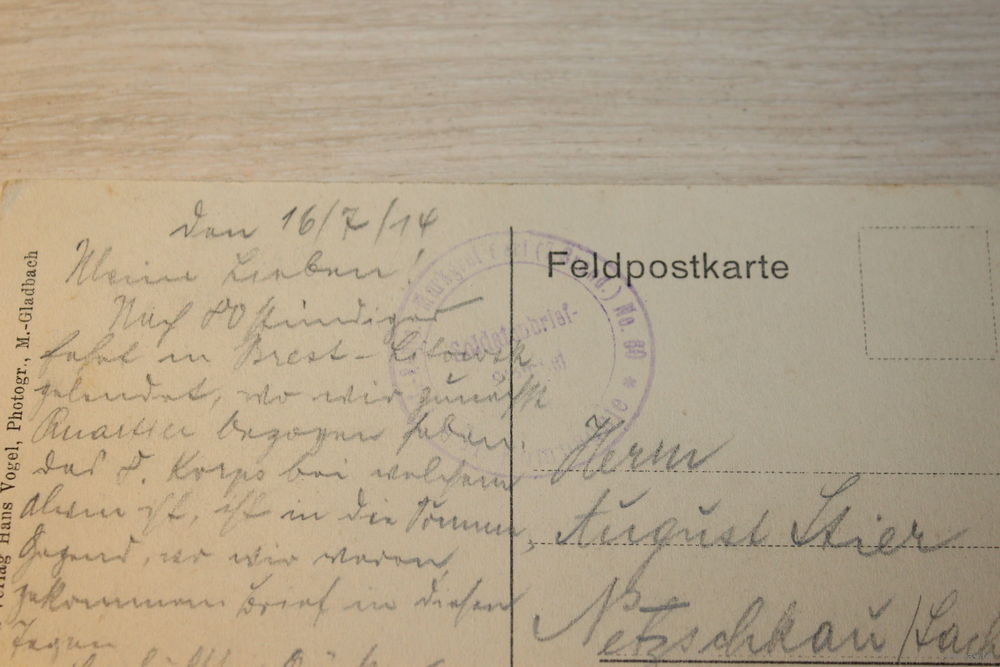 den 16/7/14
Meine Lieben!
Nach 80 stündiger
fahrt in Brest-Litowsk
gelandet, wo wir zunächst
Quartier bezogen haben.
das 8. Korps bei welchem
ist, ist in die Somme
Gegend, wo wir waren,
gekommen Brief in diesen
Tagen
Verlag Hans Vogel, Photogr., M.-Gladbach
Feldpostkarte
No. 60
Soldatenbrief-
Herrn
August Stier
Netzschkau /Sach